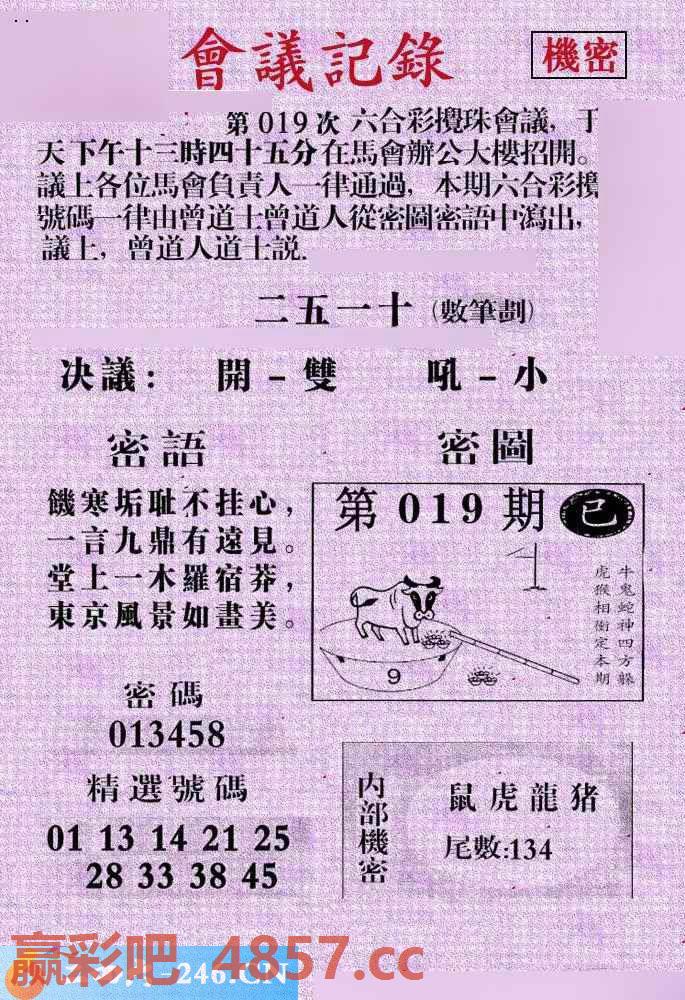 會議記錄
機密
第019次 六合彩攪珠會議，于
天下午十三時四十五分在馬會辦公大樓招開。
議上各位馬會負責人一律通過，本期六合彩攪
號碼一律由曾道士曾道人從密圖密語中瀉出，
議上，曾道人道士説.
二五一十(數筆劃)
决議： 開－雙 吼－小
密語
饑寒垢耻不挂心，
一言九鼎有遠見。
堂上一木羅宿莽，
東京風景如畫美。
密圖
第019期 已
牛鬼蛇神四方躲
虎猴相衝定本期
9
密碼
013458
精選號碼
01 13 14 21 25
28 33 38 45
内部機密
鼠虎龍猪
尾數:134
赢彩吧.4857.cc
-246.CN